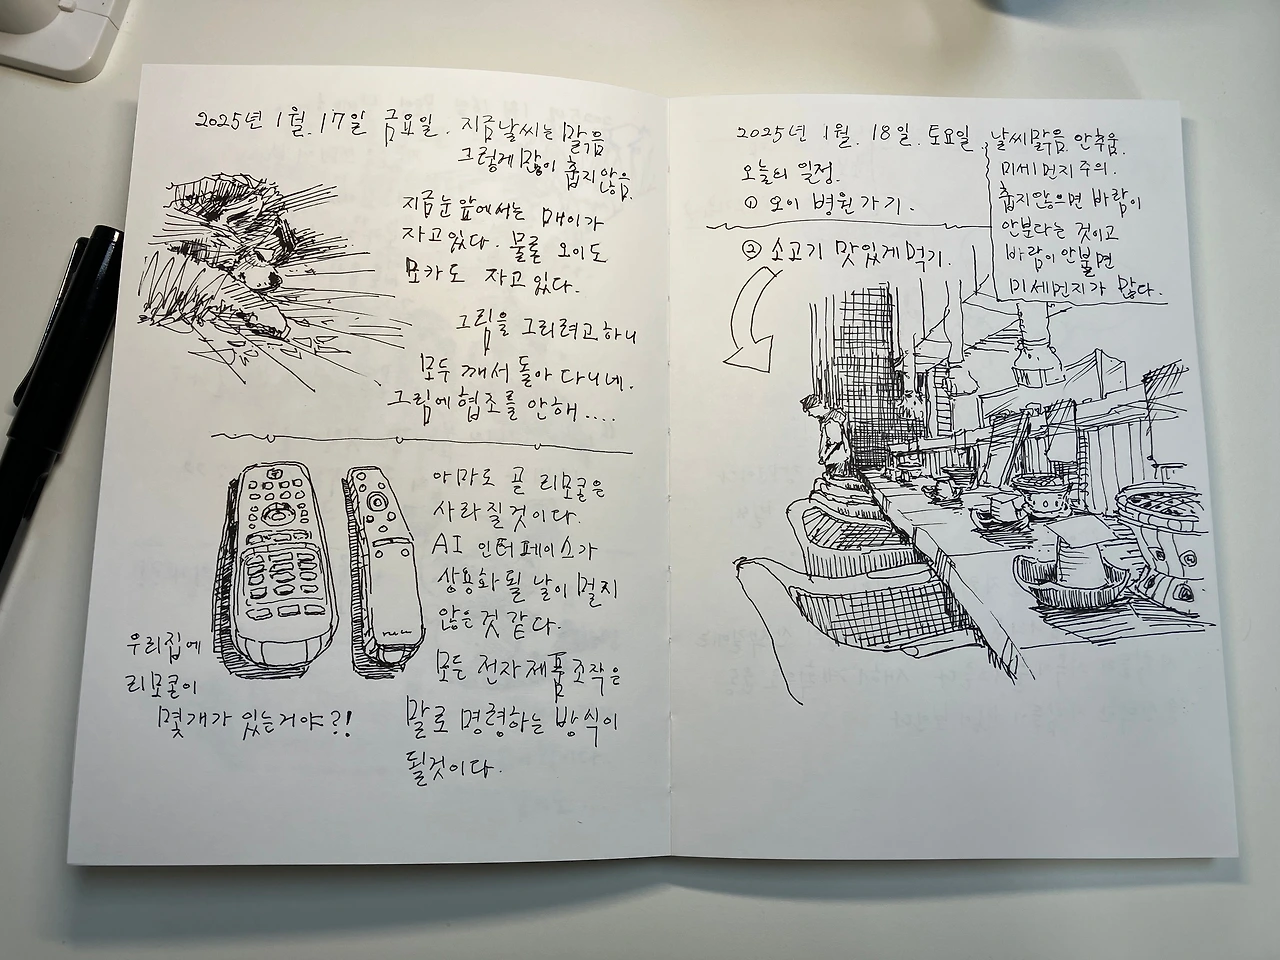 2025년 1월. 17일 금요일. 지금날씨는 맑음
그렇게 많이 춥지않음.
지금눈앞에서는 매이가
자고있다. 물론 오이도
모카도 자고있다.
그림을 그리려고하니
모두 깨서 돌아 다니네.
그림에 협조를 안해....
아마도 곧 리모콘은
사라질것이다.
AI 인터페이스가
상용화될 날이 멀지
않은것 같다.
모든 전자제품조작은
말로 명령하는 방식이
될것이다.
우리집에
리모콘이
몇개가 있는거야?!
2025년 1월. 18일. 토요일.
오늘의 일정.
① 오이 병원가기.
② 소고기 맛있게먹기.
날씨맑음. 안추움.
미세먼지주의.
춥지않으면 바람이
안분다는 것이고
바람이안불면
미세먼지가 많다.